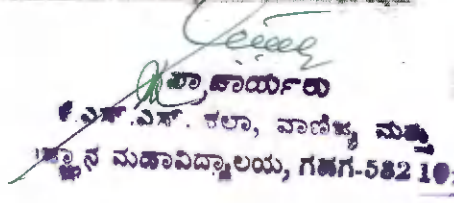 ಪ್ರಾಚಾರ್ಯರು
ಕೆ.ಎಸ್.ಎಸ್. ಕಲಾ, ವಾಣಿಜ್ಯ ಮತ್ತು
ವಿಜ್ಞಾನ ಮಹಾವಿದ್ಯಾಲಯ, ಗದಗ-582 10